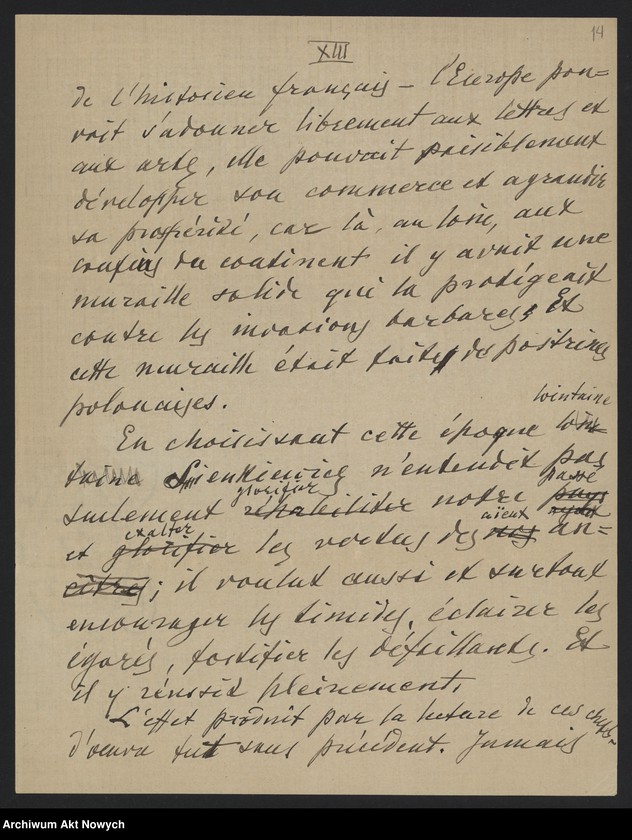 14
XIII
de l'historien français – l'Europe pou=
vait s'adonner librement aux lettres et
aux arts, elle pouvait paisiblement
développer son commerce et agrandir
sa prospérité, car là, au loin, aux
confins du continent il y avait une
muraille solide qui la protégeait
contre les invasions barbares. Et
cette muraille était faite de poitrines
polonaises.
lointaine
En choisissant cette époque loin
taine Sienkiewicz n'entendit pas
glorifier passé
seulement réhabiliter notre pays
exalter aïeux
et glorifier les vertus des nos an=
cêtres; il voulut aussi et surtout
encourager les timides, éclairer les
égarés, fortifier les défaillants. Et
il y réussit pleinement.
L'effet produit par la lecture de ces chefs-
d'oeuvre fut sans précédent. Jamais
Archiwum Akt Nowych